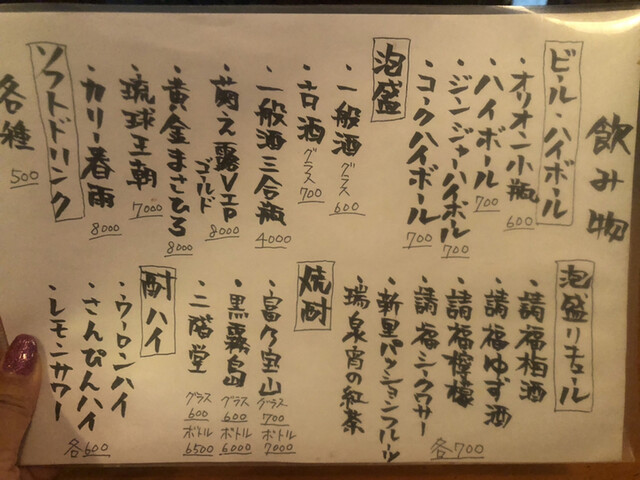 飲み物
ビール・ハイボール
・オリオン小瓶 600
・ハイボール 700
・ジンジャーハイボール 700
・コークハイボール 700
泡盛
・一般酒 グラス 600
・古酒 グラス 700
・一般酒三合瓶 4000
・萌え露VIP ゴールド 8000
・黄金まさひろ 8000
・琉球王朝 7000
・カリー春雨 8000
ソフトドリンク
各種 500
泡盛リキュール
・請福梅酒
・請福ゆず酒
・請福檸檬
・請福シークワサー
・新里パッションフルーツ
・瑞泉宵の紅茶
各700
焼酎
・富乃宝山 グラス 700 ボトル 7000
・黒霧島 グラス 600 ボトル 6000
・二階堂 グラス 600 ボトル 6500
酎ハイ
・ウーロンハイ
・さんぴんハイ
・レモンサワー
各600